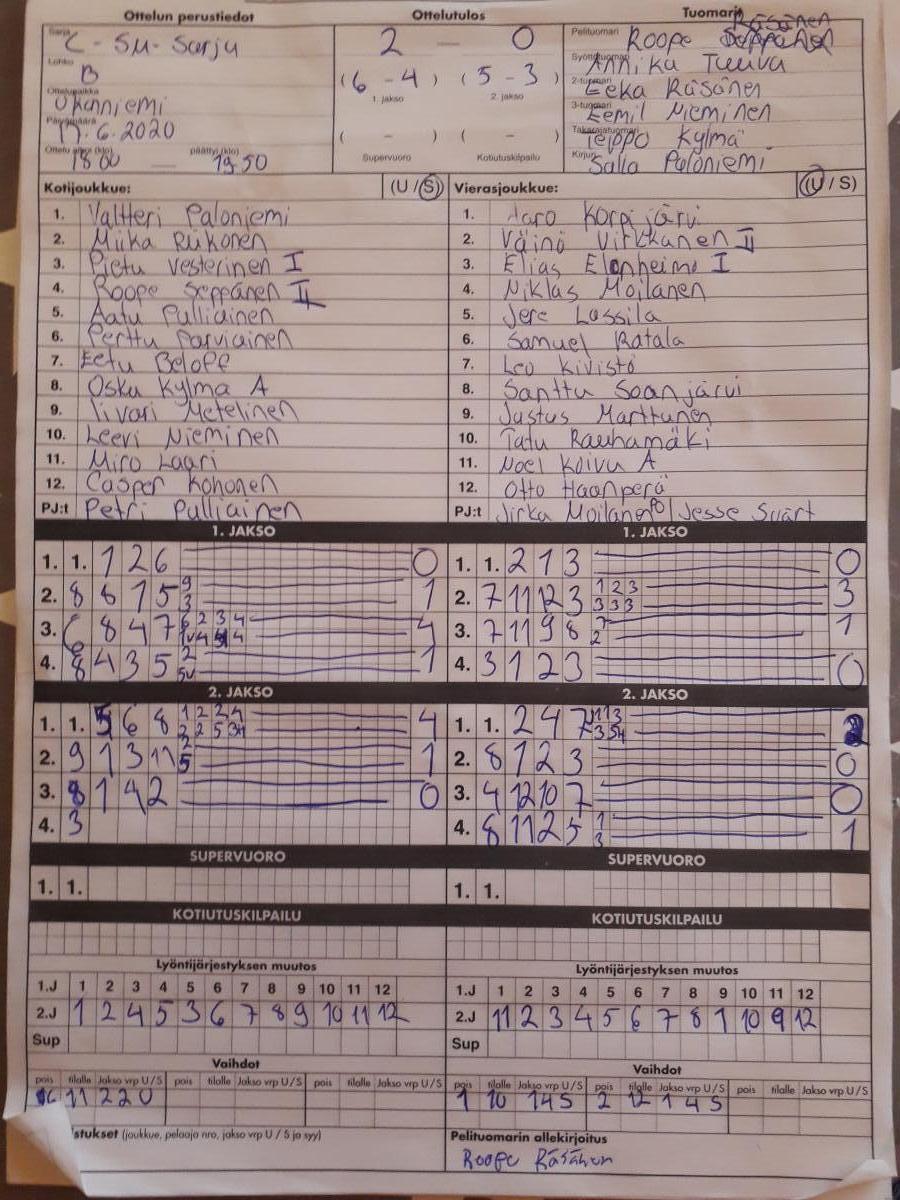 Ottelun perustiedot
Ottelutulos
Tuomarit
Sarja C - SM - Sarja
2 — 0
Pelituomari Roope Räsänen
Lohko B
(6 - 4) (5 - 3)
Syöttötuomari Annika Tuuva
1. jakso 2. jakso
Ottelupaikka Ukonniemi
2-tuomari Eeka Räsänen
3-tuomari Eemil Nieminen
Päivämäärä 17.6.2020
( - ) ( - )
Takarajatuomari Teippo Kylmä
Ottelu alkoi (klo) 18 00 — päättyi (klo) 19.50
Supervuoro Kotiutuskilpailu
Kirjuri Salla Paloniemi
Kotijoukkue: (U / S)
1. Valtteri Paloniemi
2. Miika Riikonen
3. Pietu Vesterinen I
4. Roope Seppänen II
5. Aatu Pulliainen
6. Perttu Parviainen
7. Eetu Beloff
8. Osku Kylmä A
9. Iivari Metelinen
10. Leevi Nieminen
11. Miro Laari
12. Casper Kohonen
PJ:t Petri Pulliainen
Vierasjoukkue: (U / S)
1. Aaro Korpijärvi
2. Väinö Virkkunen II
3. Elias Elonheimo I
4. Niklas Moilanen
5. Jere Lassila
6. Samuel Ratala
7. Leo Kivistö
8. Santtu Soanjärvi
9. Justus Marttunen
10. Tatu Rauhamäki
11. Noel Koivu A
12. Otto Haanperä
PJ:t Jirka Moilanen PO / Jesse Svärt
1. JAKSO
1. 1. 1 2 6 0
2. 8 8 1 5 9 3 1
3. 6 8 4 7 4
4. 8 4 3 5 2 5v 1
1. JAKSO
1. 1. 2 1 3 0
2. 7 11 12 3 1 2 3 3 3 3 3
3. 7 11 9 8 7 2 1
4. 3 1 2 3 0
2. JAKSO
1. 1. 5 6 8 1 2 2 4 4
2. 9 1 3 11 2 5 1
3. 8 1 4 2 0
4. 3
2. JAKSO
1. 1. 2 4 7 2
2. 8 1 2 3 0
3. 4 12 10 7 0
4. 8 11 2 5 1 3 1
SUPERVUORO
1. 1.
SUPERVUORO
1. 1.
KOTIUTUSKILPAILU
KOTIUTUSKILPAILU
Lyöntijärjestyksen muutos
1.J 1 2 3 4 5 6 7 8 9 10 11 12
2.J 1 2 4 5 3 6 7 8 9 10 11 12
Sup
Lyöntijärjestyksen muutos
1.J 1 2 3 4 5 6 7 8 9 10 11 12
2.J 11 2 3 4 5 6 7 8 1 10 9 12
Sup
Vaihdot
pois tilalle Jakso vrp U / S pois tilalle Jakso vrp U / S pois tilalle Jakso vrp U / S
6 11 2 2 U
Vaihdot
pois tilalle Jakso vrp U / S pois tilalle Jakso vrp U / S pois tilalle Jakso vrp U / S
1 10 1 4 S 2 12 1 4 S
stukset (joukkue, pelaaja nro, jakso vrp U / S ja syy)
Pelituomarin allekirjoitus
Roope Räsänen